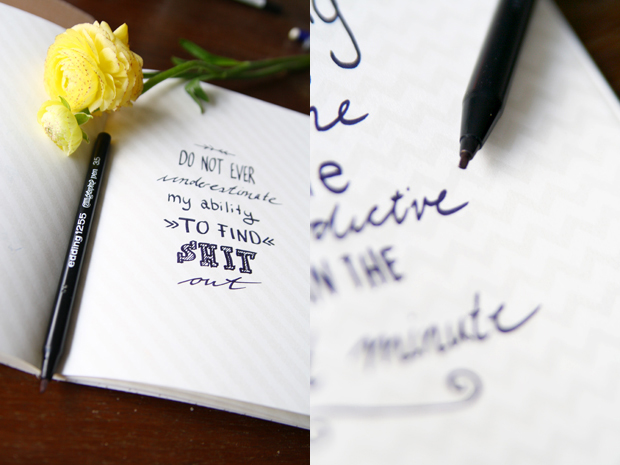 DO NOT EVER
underestimate
my ability
»TO FIND«
SHIT
out
edding 1255 calligraphy pen 3.5
IN THE
minute